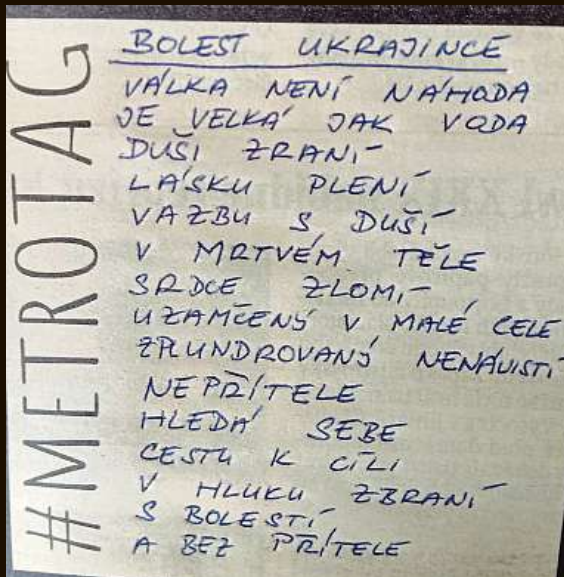 #METROTAG
BOLEST UKRAJINCE
VÁLKA NENÍ NÁHODA
JE VELKÁ JAK VODA
DUŠI ZRANÍ
LÁSKU PLENÍ
VAZBU S DUŠÍ
V MRTVÉM TĚLE
SRDCE ZLOMÍ
UZAMČENÝ V MALÉ CELE
ZPLUNDROVANÝ NENÁVISTÍ
NEPŘÍTELE
HLEDÁ SEBE
CESTU K CÍLI
V HLUKU ZBRANÍ
S BOLESTÍ
A BEZ PŘÍTELE